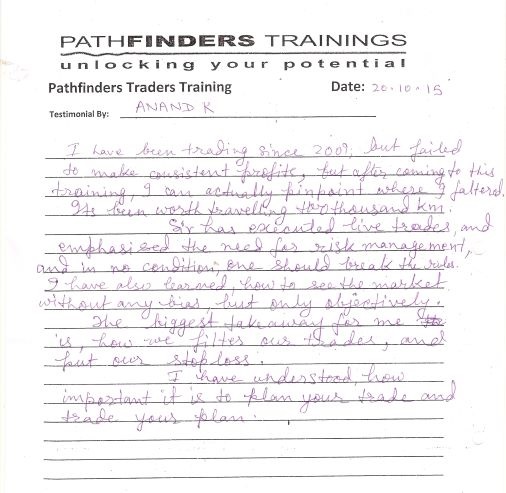 PATHFINDERS TRAININGS
unlocking your potential
Pathfinders Traders Training Date: 20-10-15
Testimonial By: ANAND K
I have been trading since 2009, but failed
to make consistent profits, but after coming to this
training, I can actually pinpoint where I falterd.
Its been worth travelling two thousand km.
Sir has executed live trades, and
emphasised the need for risk management,
and in no condition, one should break the rules.
I have also learned, how to see the market
without any bias, but only objectively.
The biggest takeaway for me
is, how we filter our trades, and
put our stoploss.
I have understood, how
important it is to plan your trade and
trade your plan.